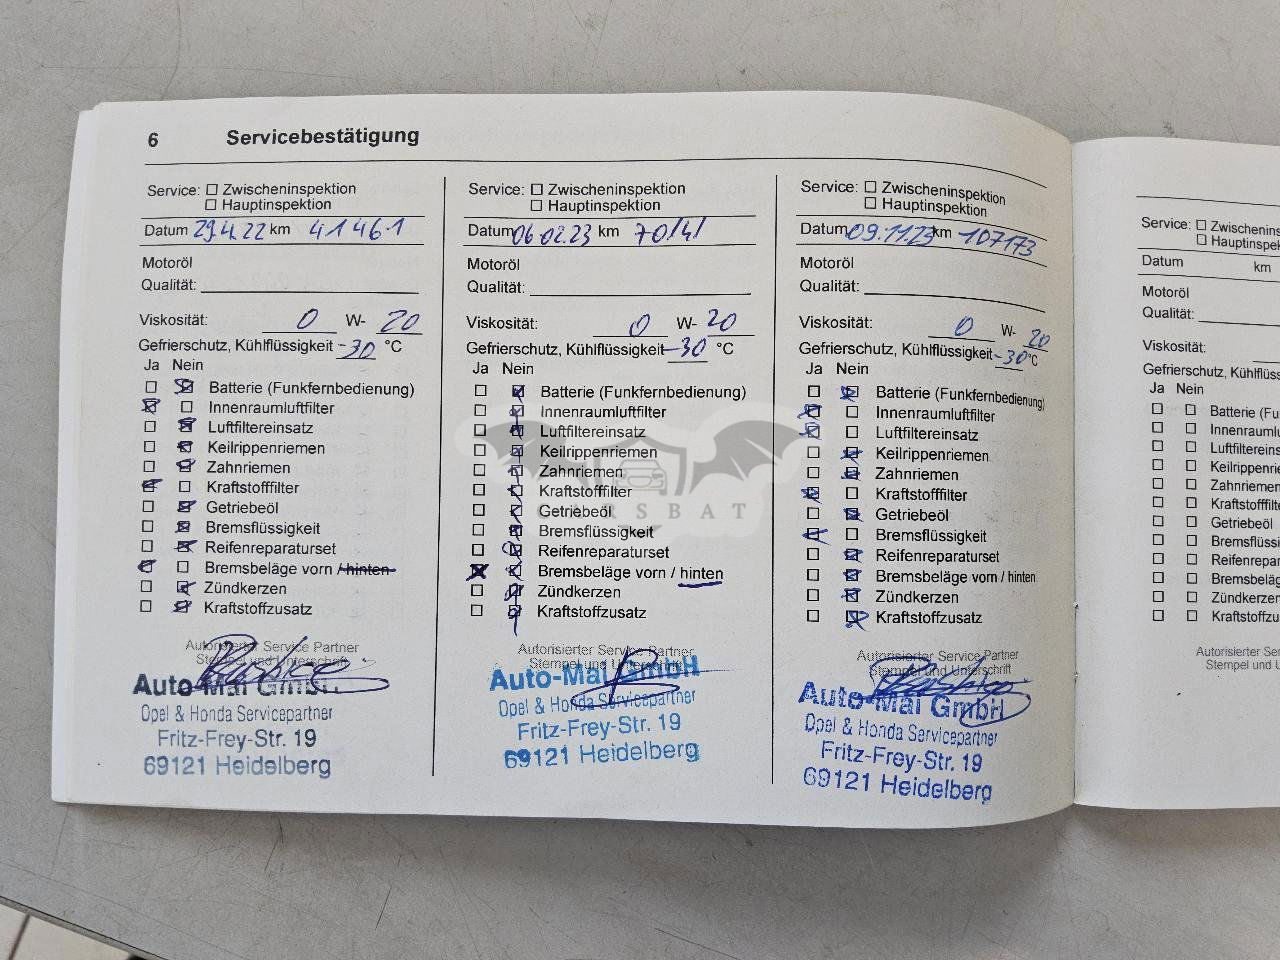 6 Servicebestätigung
Service: ☐ Zwischeninspektion
☐ Hauptinspektion
Datum 29.4.22 km 41461
Motoröl
Qualität:
Viskosität: 0 W- 20
Gefrierschutz, Kühlflüssigkeit -30 °C
Ja Nein
☐ ☒ Batterie (Funkfernbedienung)
☒ ☐ Innenraumluftfilter
☐ ☒ Luftfiltereinsatz
☐ ☒ Keilrippenriemen
☐ ☒ Zahnriemen
☒ ☐ Kraftstofffilter
☐ ☒ Getriebeöl
☐ ☒ Bremsflüssigkeit
☐ ☒ Reifenreparaturset
☒ ☐ Bremsbeläge vorn / hinten
☐ ☒ Zündkerzen
☐ ☒ Kraftstoffzusatz
Autorisierter Service Partner
Stempel und Unterschrift
Auto-Mai GmbH
Opel & Honda Servicepartner
Fritz-Frey-Str. 19
69121 Heidelberg
Service: ☐ Zwischeninspektion
☐ Hauptinspektion
Datum 06.02.23 km 70141
Motoröl
Qualität:
Viskosität: 0 W- 20
Gefrierschutz, Kühlflüssigkeit -30 °C
Ja Nein
☐ ☒ Batterie (Funkfernbedienung)
☐ ☒ Innenraumluftfilter
☐ ☒ Luftfiltereinsatz
☐ ☒ Keilrippenriemen
☐ ☒ Zahnriemen
☐ ☒ Kraftstofffilter
☐ ☒ Getriebeöl
☐ ☒ Bremsflüssigkeit
☐ ☒ Reifenreparaturset
☒ ☒ Bremsbeläge vorn / hinten
☐ ☒ Zündkerzen
☐ ☒ Kraftstoffzusatz
Autorisierter Service Partner
Stempel und Unterschrift
Auto-Mai GmbH
Opel & Honda Servicepartner
Fritz-Frey-Str. 19
69121 Heidelberg
Service: ☐ Zwischeninspektion
☐ Hauptinspektion
Datum 09.11.23 km 107173
Motoröl
Qualität:
Viskosität: 0 W- 20
Gefrierschutz, Kühlflüssigkeit -30 °C
Ja Nein
☐ ☒ Batterie (Funkfernbedienung)
☒ ☐ Innenraumluftfilter
☒ ☐ Luftfiltereinsatz
☐ ☒ Keilrippenriemen
☐ ☒ Zahnriemen
☒ ☐ Kraftstofffilter
☐ ☒ Getriebeöl
☒ ☐ Bremsflüssigkeit
☐ ☒ Reifenreparaturset
☐ ☒ Bremsbeläge vorn / hinten
☐ ☒ Zündkerzen
☐ ☒ Kraftstoffzusatz
Autorisierter Service Partner
Stempel und Unterschrift
Auto-Mai GmbH
Opel & Honda Servicepartner
Fritz-Frey-Str. 19
69121 Heidelberg
Service: ☐ Zwischenins
☐ Hauptinspe
Datum km
Motoröl
Qualität:
Viskosität:
Gefrierschutz, Kühlflüss
Ja Nein
☐ ☐ Batterie (Fu
☐ ☐ Innenraumlu
☐ ☐ Luftfilterein
☐ ☐ Keilrippenri
☐ ☐ Zahnriemen
☐ ☐ Kraftstofffilte
☐ ☐ Getriebeöl
☐ ☐ Bremsflüssi
☐ ☐ Reifenrepara
☐ ☐ Bremsbeläg
☐ ☐ Zündkerzen
☐ ☐ Kraftstoffzu
Autorisierter Se
Stempel und